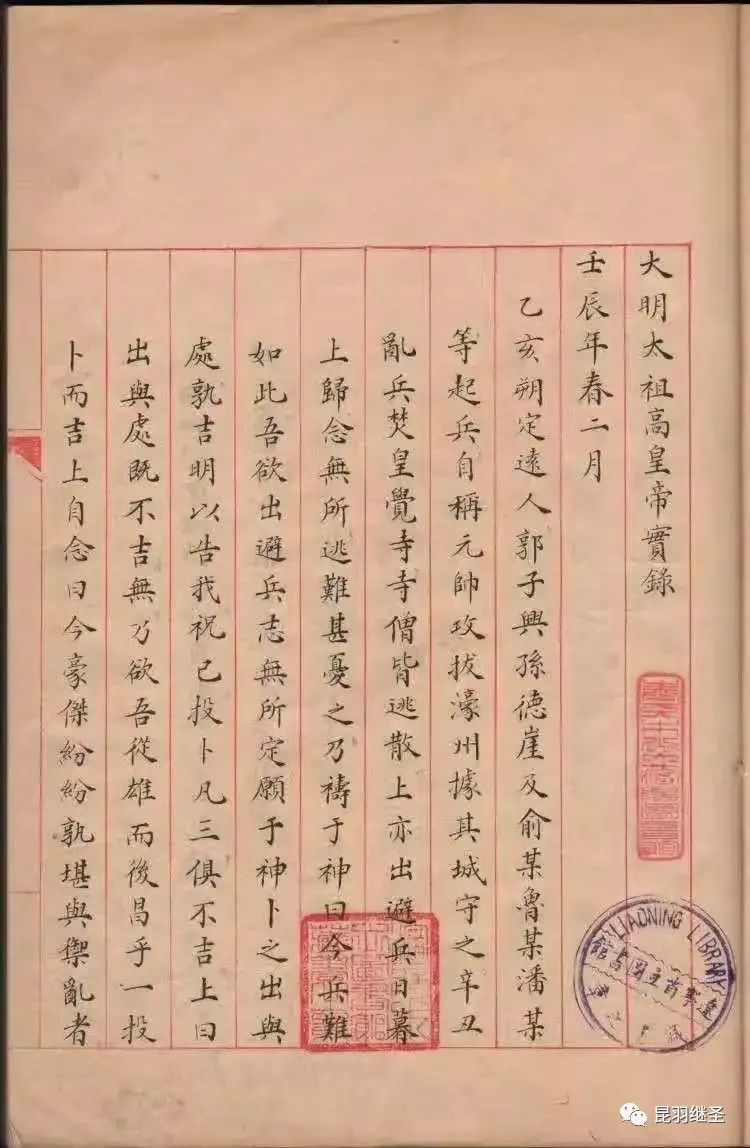 大明太祖高皇帝實錄
壬辰年春二月
乙亥朔定遠人郭子興孫德崖及俞某魯某潘某
等起兵自稱元帥攻拔濠州據其城守之辛丑
亂兵焚皇覺寺寺僧皆逃散上亦出避兵日暮
上歸念無所逃難甚憂之乃禱于神曰今兵難
如此吾欲出避兵志無所定願于神卜之出與
處孰吉明以告我祝已投卜凡三俱不吉上曰
出與處既不吉無乃欲吾從雄而後昌乎一投
卜而吉上自念曰今豪傑紛紛孰堪與禦亂者
LIAONING LIBRARY
昆羽继圣